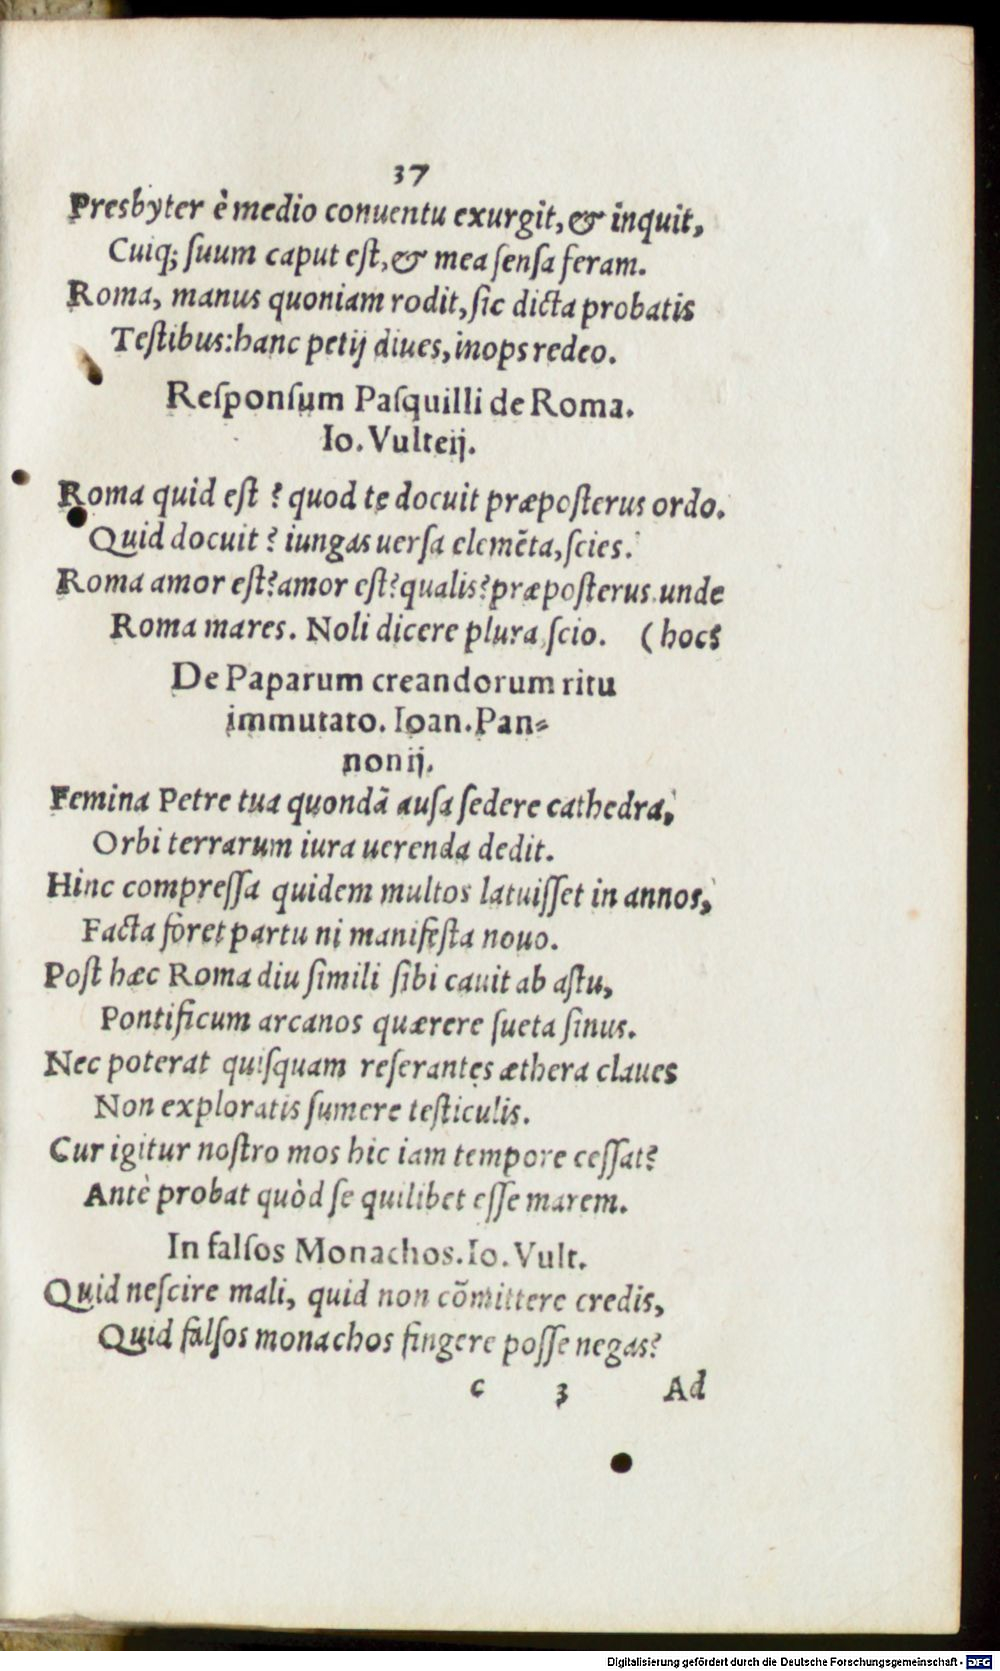 37
Presbyter è medio conuentu exurgit, & inquit,
Cuiq; ſuum caput eſt, & mea ſenſa feram.
Roma, manus quoniam rodit, ſic dicta probatis
Teſtibus: hanc petij diues, inops redeo.
Reſponſum Paſquilli de Roma.
Io. Vulteij.
Roma quid eſt ? quod te docuit præpoſterus ordo.
Quid docuit ? iungas uerſa elemẽta, ſcies.
Roma amor eſt? amor eſt? qualis? præpoſterus. unde
Roma mares. Noli dicere plura, ſcio. (hoc?
De Paparum creandorum ritu
immutato. Ioan. Pan=
nonij.
Femina Petre tua quondã auſa ſedere cathedra,
Orbi terrarum iura uerenda dedit.
Hinc compreſſa quidem multos latuiſſet in annos,
Facta foret partu ni manifeſta nouo.
Poſt hæc Roma diu ſimili ſibi cauit ab aſtu,
Pontificum arcanos quærere ſueta ſinus.
Nec poterat quiſquam reſerantes æthera claues
Non exploratis ſumere teſticulis.
Cur igitur noſtro mos hic iam tempore ceſſat?
Antè probat quòd ſe quilibet eſſe marem.
In falſos Monachos. Io. Vult.
Quid neſcire mali, quid non cõmittere credis,
Quid falſos monachos fingere poſſe negas?
c 3 Ad
Digitalisierung gefördert durch die Deutsche Forschungsgemeinschaft - DFG